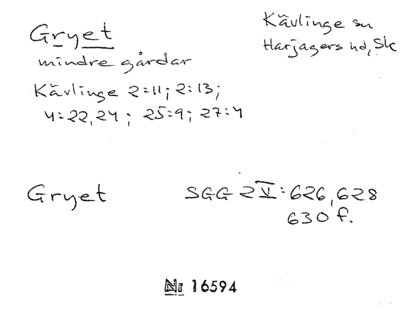 Gryet
Kävlinge sn
Harjagers hd, Sk
mindre gårdar
Kävlinge 2=11; 2:13;
4=22,24; 25=9; 27=4
Gryet
SGG 2V:626,628
630 f.
Nr 16594